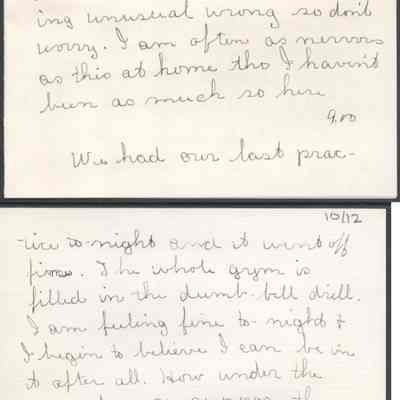 ing unusual wrong so don't
worry. I am often as nervous
as this at home tho I haven't
been as much so here
9.00
We had our last prac-
10/12
tice to-night and it went off
fine. The whole gym is
filled in the dumb-bell drill.
I am feeling fine to-night &
I begin to believe I can be in
it after all. How under the